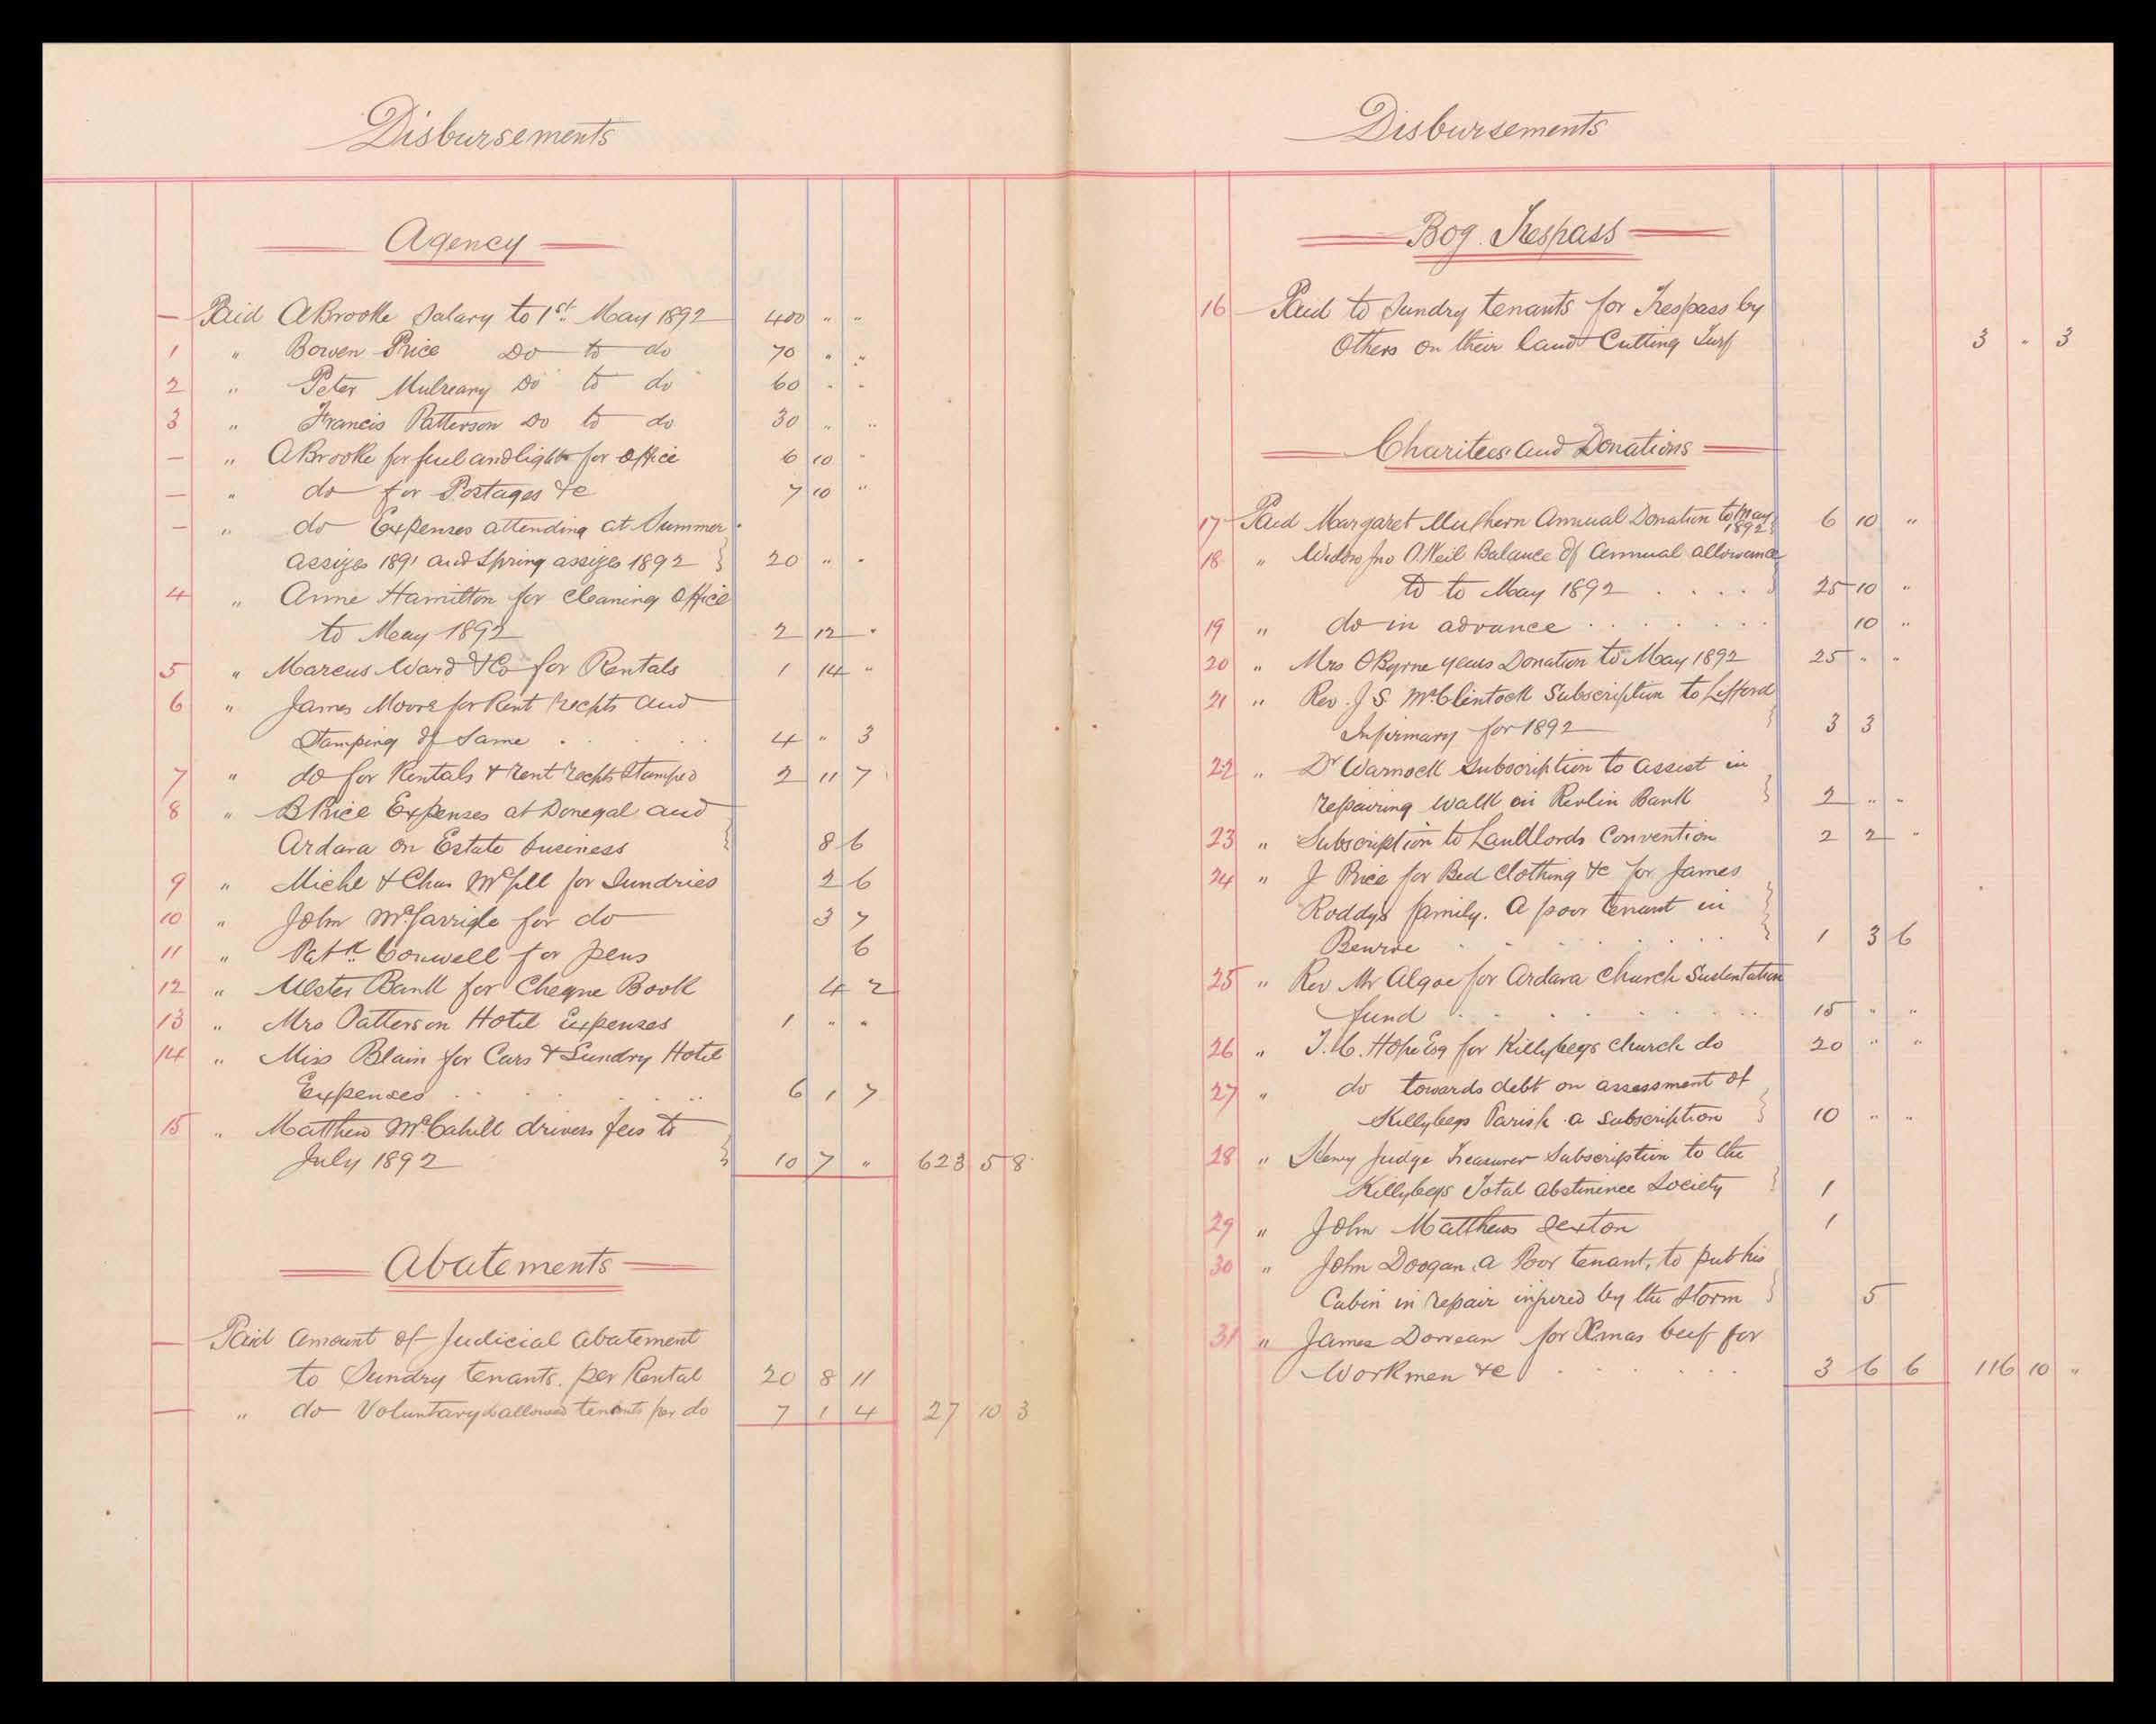 Disbursements
Agency
— Paid A Brooke Salary to 1st May 1892 400 " "
1 " Bowen Price Do to do 70 " "
2 " Peter Mulreany Do to do 60 " "
3 " Francis Patterson Do to do 30 " "
— " A Brooke for fuel and light for office 6 10 "
— " do for Postages &c 7 10 "
— " do Expenses attending at Summer
assizes 1891 and Spring assizes 1892 20 " "
4 " Anne Hamilton for cleaning office
to May 1892 2 12 "
5 " Marcus Ward & Co for Rentals 1 14 "
6 " James Moore for Rent recpts and
Stamping of Same 4 " 3
7 " do for Rentals & rent recpts Stamped 2 11 7
8 " B Price Expenses at Donegal and
Ardara on Estate business 8 6
9 " Michl & Chas McGill for Sundries 2 6
10 " John McGarrigle for do 3 7
11 " Patk Conwell for pens 6
12 " Ulster Bank for Cheque Book 4 2
13 " Mrs Patterson Hotel Expenses 1 " "
14 " Miss Blain for Cars & Sundry Hotel
Expenses 6 1 7
15 " Matthew McCahill drivers fees to
July 1892 10 7 " 623 5 8
Abatements
— Paid amount of Judicial abatement
to Sundry tenants. per Rental 20 8 11
— " do Voluntary do allowed tenants per do 7 1 4 27 10 3
Disbursements
Bog Trespass
16 Paid to Sundry tenants for Trespass by
Others on their land Cutting Turf 3 " 3
Charitees and Donations
17 Paid Margaret Annual Donation to May
1892 6 10 "
18 " Widow Jno O'Neil Balance of annual allowance
to to May 1892 25 10 "
19 " do in advance 10 "
20 " Mrs O'Byrne years Donation to May 1892 25 " "
21 " Rev. J S. McClintock Subscription to Lifford
Infirmary for 1892 3 3
22 " Dr Warnock Subscription to assist in
repairing walk on Revlin Bank 2 " "
23 " Subscription to Landlords Convention 2 2 "
24 " J Price for Bed clothing &c for James
Roddys family. A poor tenant in
Benroe 1 3 6
25 " Rev Mr Algoe for Ardara Church Sustentation
fund 15 " "
26 " T. C. Hope Esq for Killybegs church do 20 " "
27 " do towards debt on assessment of
Killybegs Parish a subscription 10 " "
28 " Henry Judge Treasurer Subscription to the
Killybegs Total Abstinence Society 1
29 " John Matthews Sexton 1
30 " John Doogan, a Poor tenant, to put his
Cabin in repair injured by the Storm 5
31 " James Dorrean for Xmas beef for
Workmen &c 3 6 6 116 10 "